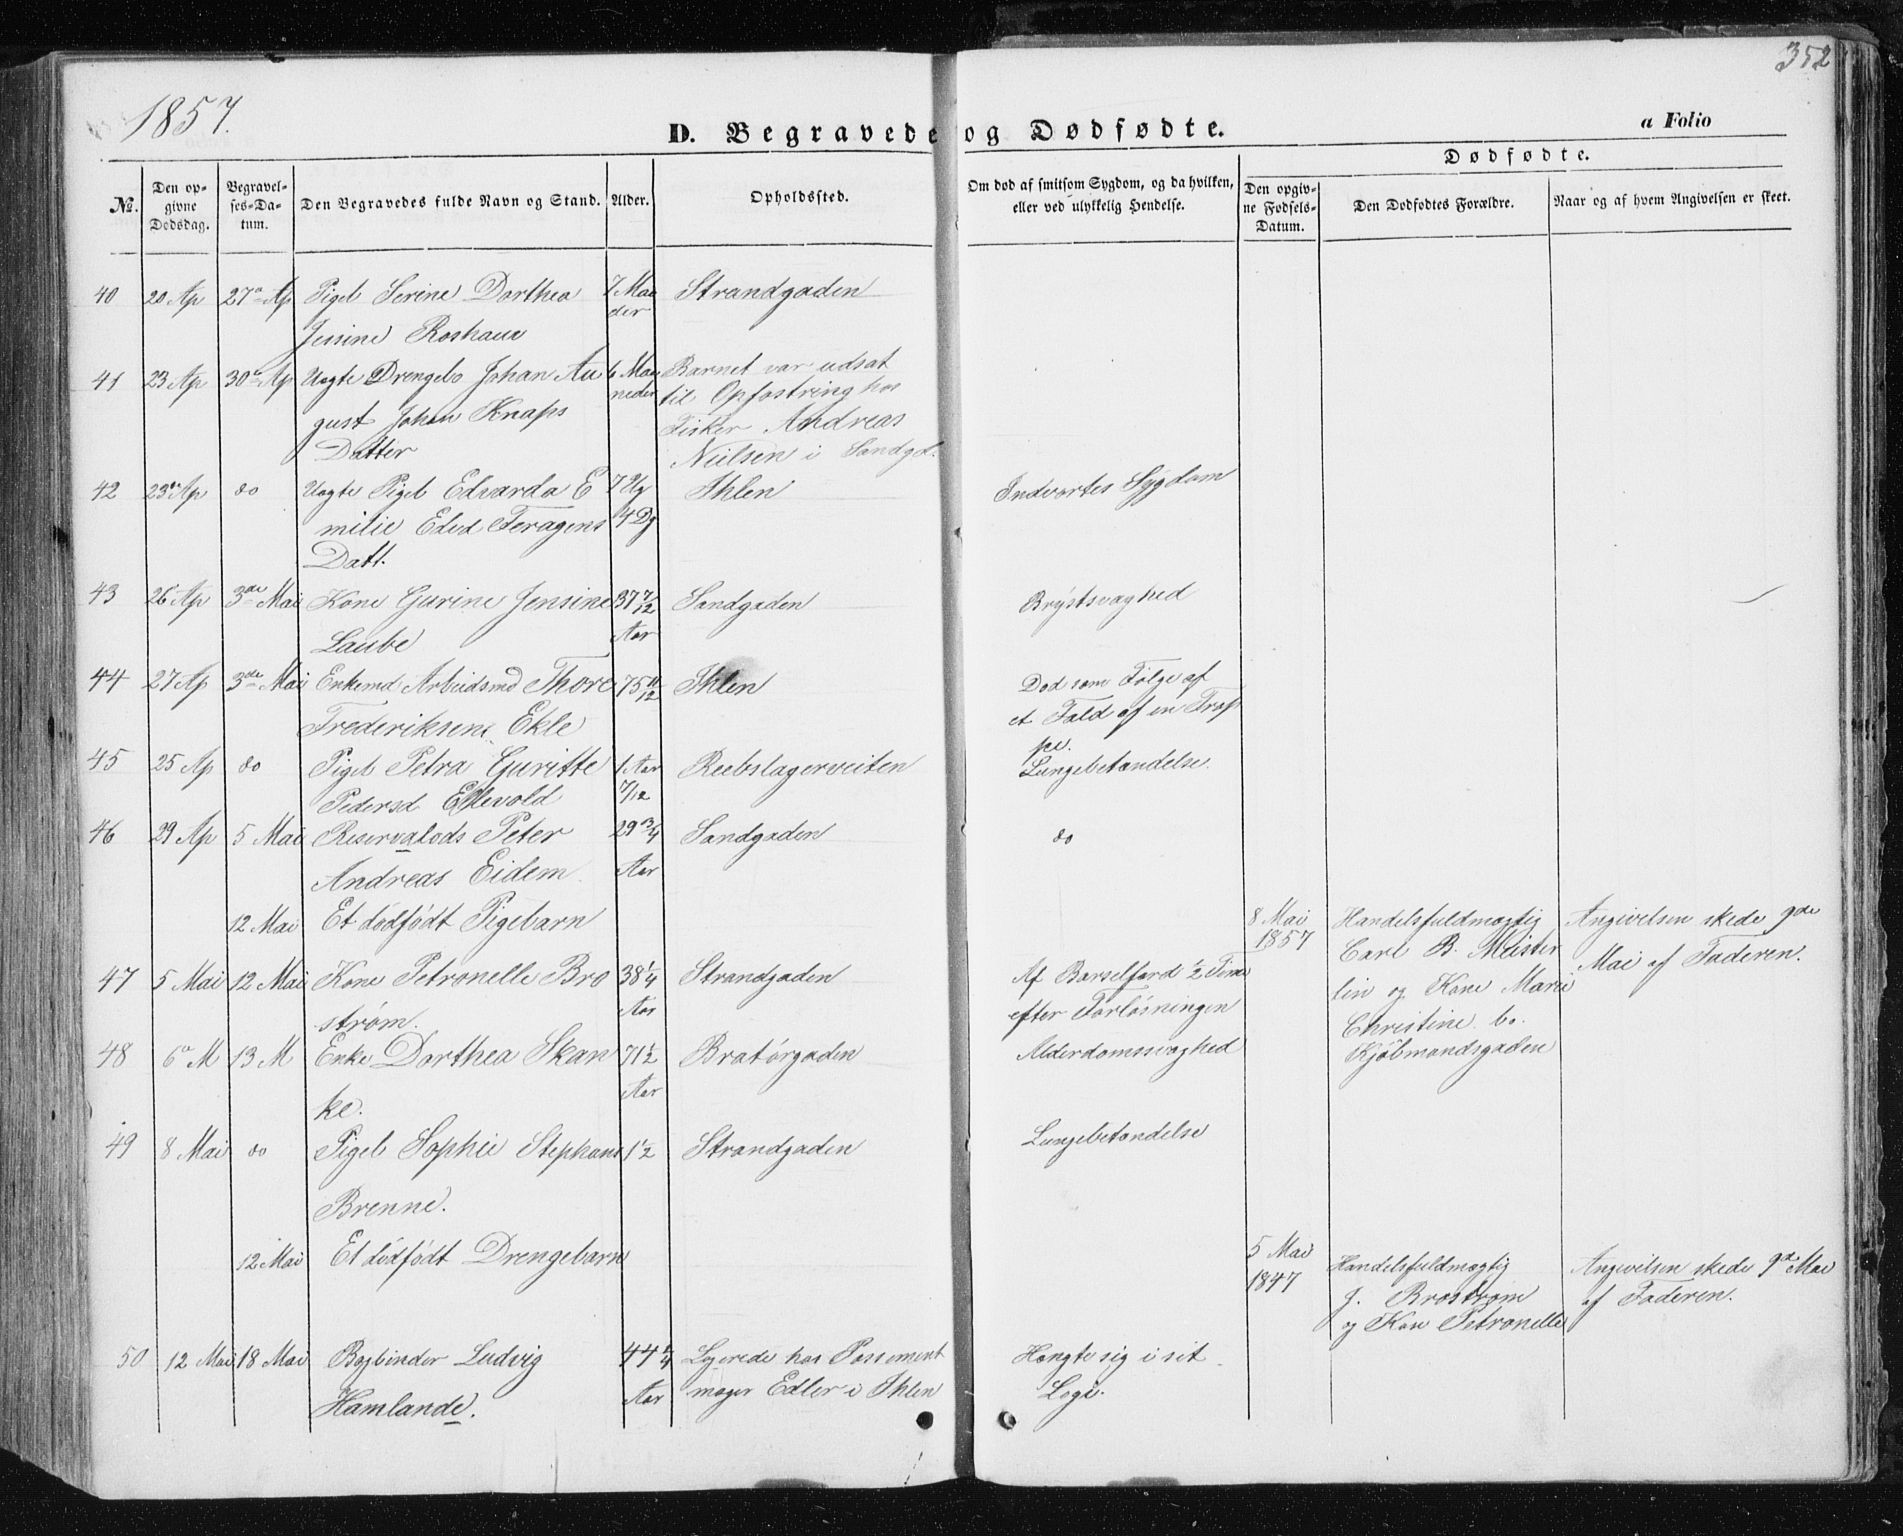 352
1857.
D. Begravede og Dødfødte.
a Folio
No.
Den opgivne Dødsdag.
Begravelses-Datum.
Den Begravedes fulde Navn og Stand.
Alder.
Opholdssted.
Om død af smitsom Sygdom, og da hvilken, eller ved ulykkelig Hendelse.
Dødfødte.
Den opgivne Fødsels-Datum.
Den Dødfødtes Forældre.
Naar og af hvem Angivelsen er skeet.
40 20 Ap 27 Ap Pigeb Serine Dorthea 7 Maa Strandgaden
Jensine Roshaue der
41 23 Ap 30 Ap Uægte Drengeb Johan Au 6 Maa Barnet var udsat
gust Johan Knaps neder til Opfostring hos
Datter Fisker Andreas
Nielsen i Sandgd.
42 23 Ap do Uægte Pigeb Edvarda E 7 Ug Ihlen Indvortes Sygdom
milie Edvd Feragens 4 Dg
Datt.
43 26 Ap 3de Mai Kone Gurine Jensine 37 7/12 Sandgaden Brystsvaghed
Laube Aar
44 27 Ap 3de Mai Enkemd Arbeidsmd Thore 75 11/12 Ihlen Død som Følge af
Frederiksen Ekle et Fald af en Trap
pe.
45 25 Ap do Pigeb Petra Guritte 1 Aar Reebslagerveiten Lungebetændelse.
Pedersd Ellevold 7/12
46 29 Ap 5 Mai Reservelods Peter 29 3/4 Sandgaden do
Andreas Eidem Aar
12 Mai Et dödfödt Pigebarn 8 Mai Handelsfuldmægtig Angivelsen skede 9de
1857 Carl B. Meister Mai af Faderen.
lin og Kone Marie
Christine bo.
Kjöbmandsgaden
47 5 Mai 12 Mai Kone Petronelle Bro 38 1/4 Strandgaden Af Barselfærd 1/2 Time
strøm. Aar efter Forlösningen
48 6 M 13 M Enke Dorthea Skan 71 1/2 Bratörgaden Alderdomssvaghed
ke. Aar
49 8 Mai do Pigeb Sophie Stephans 1 1/2 Strandgaden Lungebetændelse
Brenne.
12 Mai Et dödfödt Drengebarn 5 Mai Handelsfuldmægtig Angivelsen skede 9de Mai
1847 J. Broström af Faderen.
og Kone Petronelle
50 12 Mai 18 Mai Bogbinder Ludvig 44 1/4 Logerede hos Possement Hængte sig i sit
Hamlande. Aar mager Edler i Ihlen Logi.